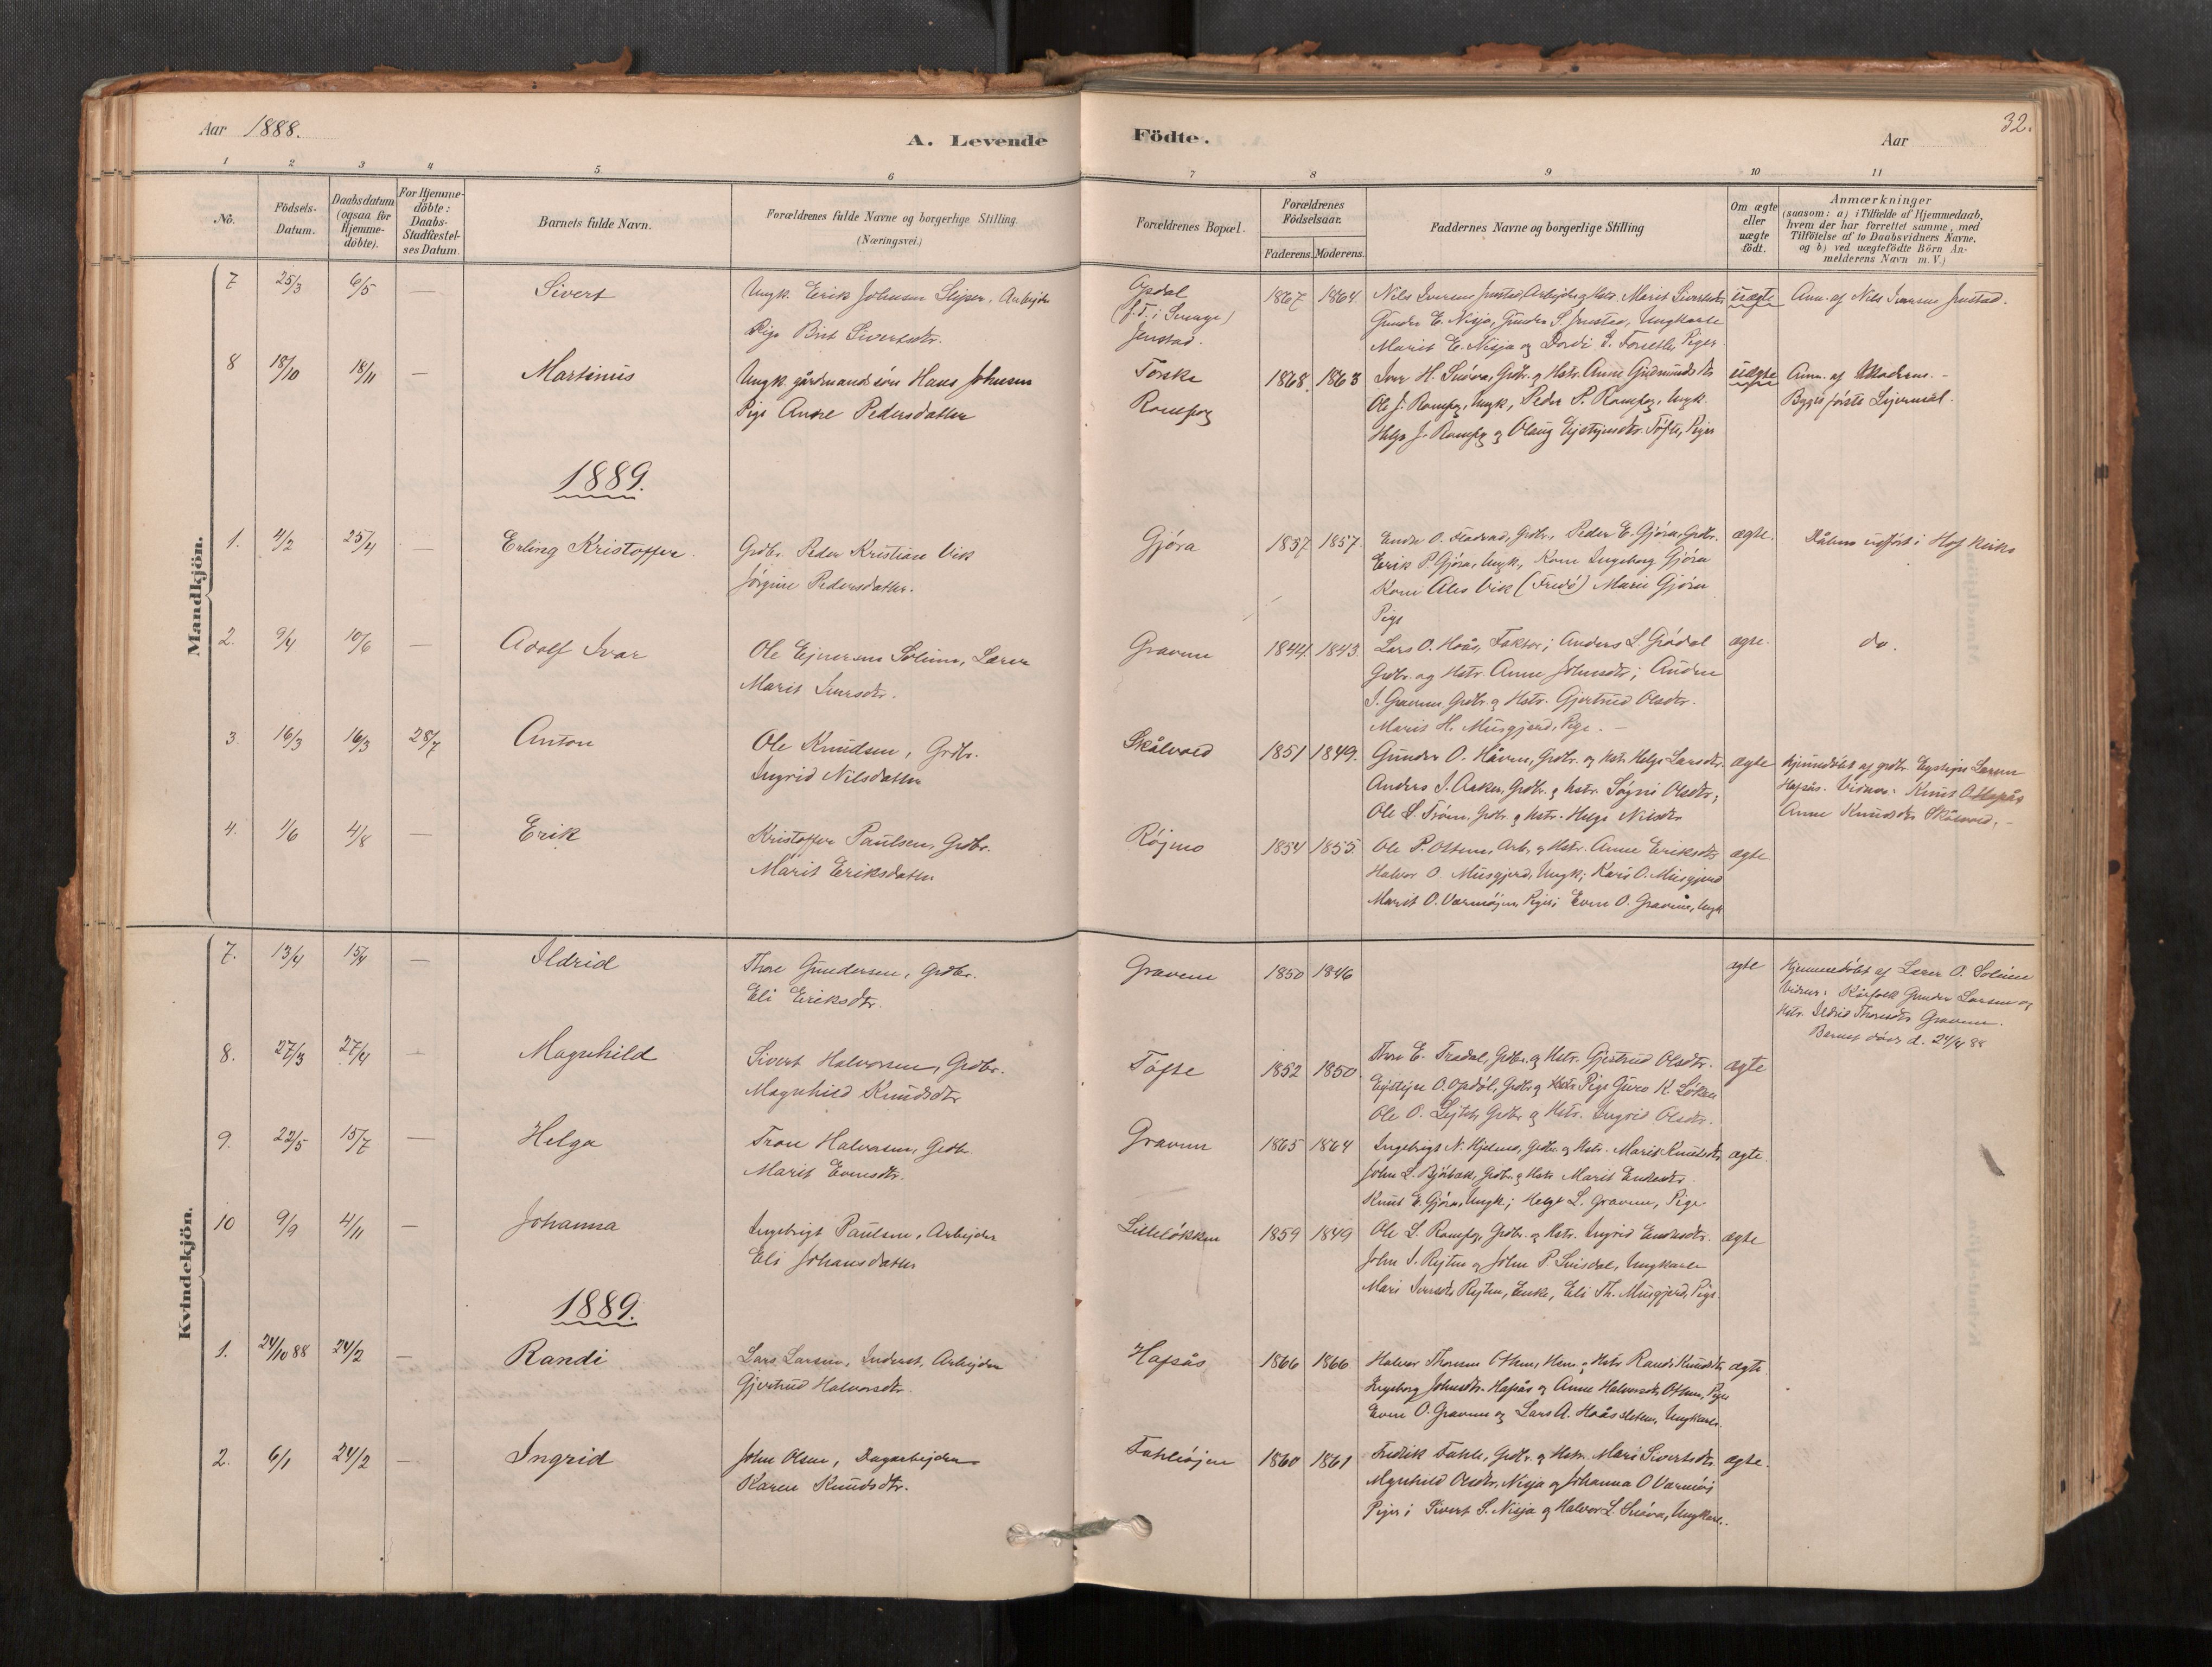 Aar 1888.
A. Levende Födte.
Aar
32.
1 2 3 4 5 6 7 8 9 10 11
No.
Födsels-Datum.
Daabsdatum (ogsaa for Hjemme-döbte).
For Hjemme-döbte: Daabs-Stadfæstel-ses Datum.
Barnets fulde Navn.
Forældrenes fulde Navne og borgerlige Stilling. (Næringsvei.)
Forældrenes Bopæl.
Forældrenes Födselsaar.
Faderens. Moderens.
Faddernes Navne og borgerlige Stilling
Om ægte eller uægte födt.
Anmærkninger
(saasom: a) i Tilfælde af Hjemmedaab,
hvem der har forrettet samme, med
Tilföielse af to Daabsvidners Navne,
og b) ved uægtefödte Börn An-
melderens Navn m. V.)
Mandkjön.
7 25/3 6/5 — Sivert
Ungk. Erik Johnsen, Arbejder
Pige Brit Sivertsdtr.
Opdal
Jenstad.
1867 1864.
Nils Iversen Jenstad, Arbejder og Hstr. Marit Sivertsdtr
Gunder E. Nisja, Gunder S. Jenstad, Ungkarle
Marit E. Nisja og Dordi I. Forseth, Piger.
uægte
Anm. af Nils Iversen Jenstad.
8 18/10 18/11 — Martinus
Ungk. gårdmandsön Hans Johnsen
Pige Anne Pedersdatter
Torske
Romfog
1868. 1863
Iver H. Snöva, Grdbr. og Hstr. Anne Gudmundsdtr
Ole J. Romfog, Ungk, Peder P. Romfog, Ungk.
Helge J. Romfog og Olaug Ejstejnsdtr. Töfte, Piger
uægte
Anm. af Moderen. -
Begges förste Lejermål.
1889.
1. 4/2 25/4 — Erling Kristoffer.
Grdbr. Peder Kristian Vik
Jörgine Pedersdatter.
Gjöra
1857 1857.
Endre O. Fladvad, Grdbr., Peder E. Gjöra, Grdbr.
Erik P. Gjöra, Ungk., Kone Ingeborg Gjöra
Kone Ales Vik (Fredö) Marie Gjöra
Pige
ægte.
Dåben udfört i Hof Kirke
2. 9/4 10/6 — Adolf Ivar
Ole Ejnersen Solum, Lærer
Marit Iversdtr.
Gravem
1844. 1843.
Lars O. Hoås, Faktor; Anders L. Grödal
Grdbr. og Hstr. Anne Johnsdtr; Anders
I. Gravem, Grdbr. og Hstr. Gjertrud Olsdtr.
Marit H. Musgjerd, Pige. —
ægte.
do.
3. 16/3 16/3 28/7 Anton
Ole Knudsen, Grdbr.
Ingrid Nilsdatter
Skålvold
1851 1849.
Gunder O. Håven, Grdbr. og Hstr. Helge Larsdtr.
Anders I. Aaker, Grdbr. og Hstr. Sögni Olsdtr;
Ole L. Tröen, Grdbr. og Hstr. Helge Nilsdtr
ægte
Hjemmedöbt af grdbr. Eystejn Larsen
Hafsås. Vidner: Knut O. Hafsås
Anne Knudsdtr Skålvold. —
4. 1/6 4/8 — Erik
Kristoffer Paulsen, Grdbr.
Marit Eriksdatter
Röjmo
1854 1855.
Ole P. Ottem, Arb. og Hstr. Anne Eriksdtr
Halvor O. Musgjerd, Ungk; Kari O. Musgjerd
Marit O. Varmöjen, Piger; Even O. Gravem, Ungk
ægte
Kvindekjön.
7. 13/4 15/4 — Ildrid
Thore Gundersen, Grdbr.
Eli Eriksdtr.
Gravem
1850 1846
ægte
Hjemmedöbt af Lærer O. Solum
Vidner: Kårfolk Gunder Larsen og
Hstr. Ildrid Thoresdtr Gravem.
Barnet döde d. 24/4 88
8. 27/3 27/4 — Magnhild
Sivert Halvorsen, Grdbr.
Magnhild Knudsdtr
Töfte
1852 1850.
Thore E. Tredal, Grdbr. og Hstr. Gjertrud Olsdtr.
Ejstejn O. Opdöl, Grdbr og Pige Guro K. Löken
Ole O. Grdbr og Hstr. Ingrid Olsdtr.
ægte
9. 22/5 15/7 — Helga
Tron Halvorsen, Grdbr.
Marit Evensdtr.
Gravem
1865 1864
Ingebrigt N. Hjelmo, Grdbr. og Hstr. Marit Knudsdtr
John L. Björbæk, Grdbr. og Hstr Marit Endresdtr.
Knut E. Gjöra, Ungk; Helge L. Gravem, Pige
ægte.
10 9/9 4/11 — Johanna
Ingebrigt Paulsen, Arbejder
Eli Johansdatter
Lillelökken
1859 1849
Ole L. Romfog, Grdbr. og Hstr. Ingrid Endresdtr.
John I. Rejten og John P. Svisdal, Ungkarle
Mari Iversdtr Rejten, Enke, Eli Th. Musgjerd, Pige
ægte
1889.
1. 24/10 88 24/2 — Randi
Lars Larsen, Inderst, Arbejder
Gjertrud Halvorsdtr.
Hafsås
1866 1866
Halvor Thoresen Ottem, Hstr Randi Knudsdtr
Ingeborg Johnsdtr. Hafsås og Anne Halvorsdtr Ottem, Piger
Even O. Gravem og Lars A. Hoåssletten, Ungkarle.
ægte
2. 6/1 24/2 — Ingrid
John Olsen, Dagarbejder
Karen Knudsdtr.
Fahlöjen
1860 1861
Fredrik Fahle, Grdbr. og Hstr. Mari Sivertsdtr
Magnhild Olsdtr. Nisja og Johanna O Varmöj
Piger; Sivert S. Nisja og Halvor L. Snöva, Ungkarle.
ægte.